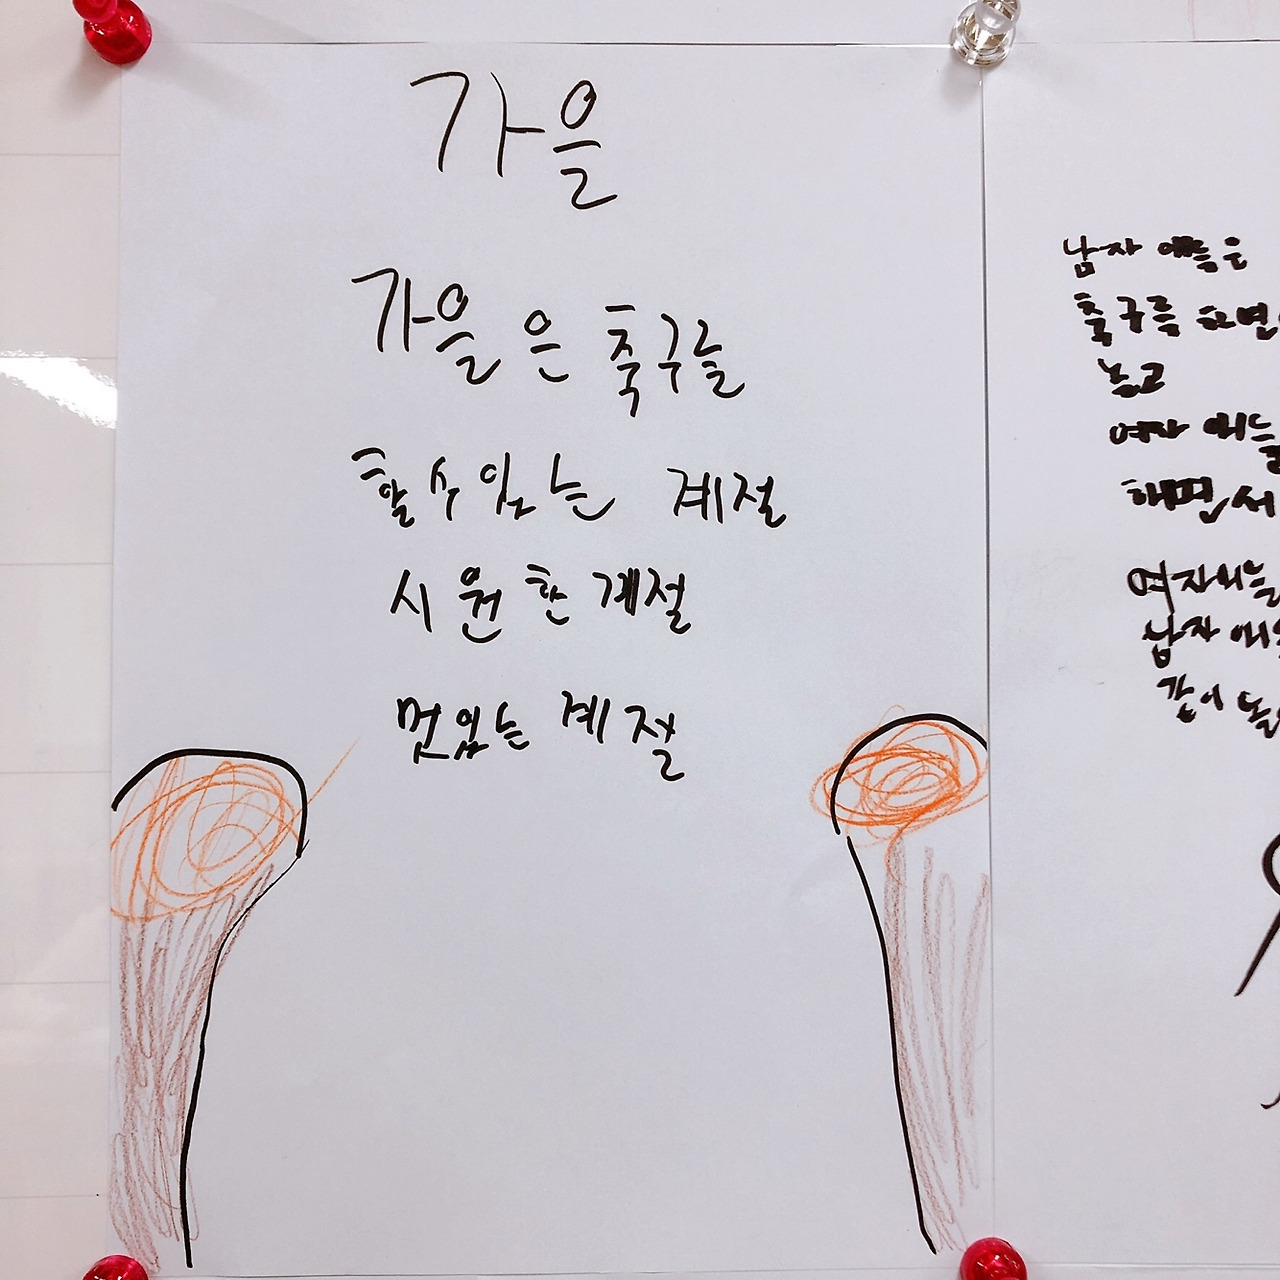 가을
가을은 축구늘
할수있는 계절
시원한 계절
멋있는 계절
남자 애들은
축구를 하면
놀고
여자
해면서
남자
같이